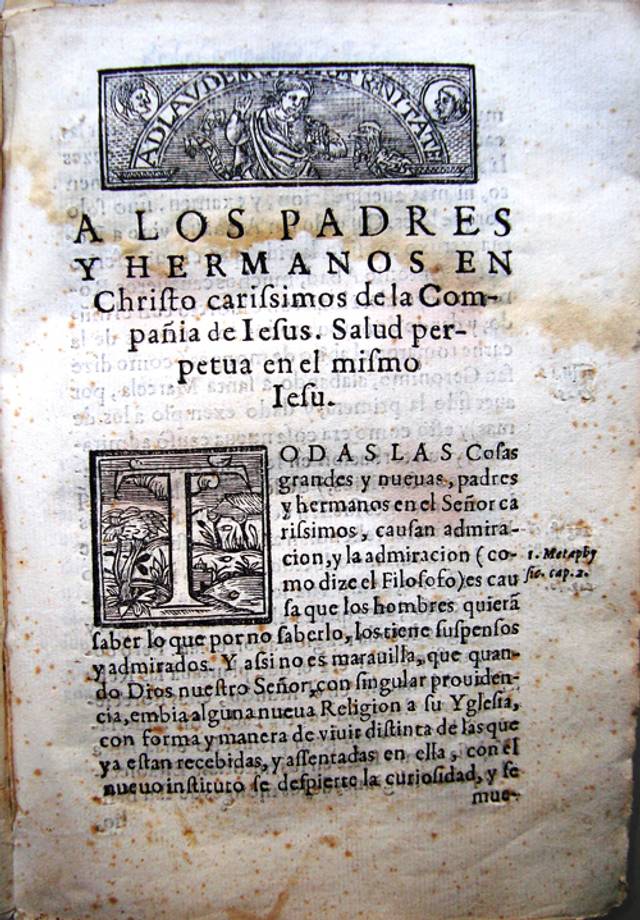 AD LAVDEM TRINITATE
A LOS PADRES
Y HERMANOS EN
Chriſto cariſsimos de la Com-
pañia de Ieſus. Salud per-
petua en el miſmo
Ieſu.
TODAS LAS Coſas
grandes y nueuas, padres
y hermanos en el Señor ca
riſsimos, cauſan admira-
cion, y la admiracion (co-
mo dize el Filoſofo) es cau
ſa que los hombres quierā
ſaber lo que por no ſaberlo, los tiene ſuſpenſos
y admirados. Y aſsi no es marauilla, que quan-
do Dios nueſtro Señor, con ſingular prouiden-
cia, embia alguna nueua Religion a ſu Ygleſia,
con forma y manera de viuir diſtinta de las que
ya eſtan recebidas, y aſſentadas en ella, con el
nueuo inſtituto ſe deſpierte la curioſidad, y ſe
mue-
1. Metaphy
ſic. cap. 2.